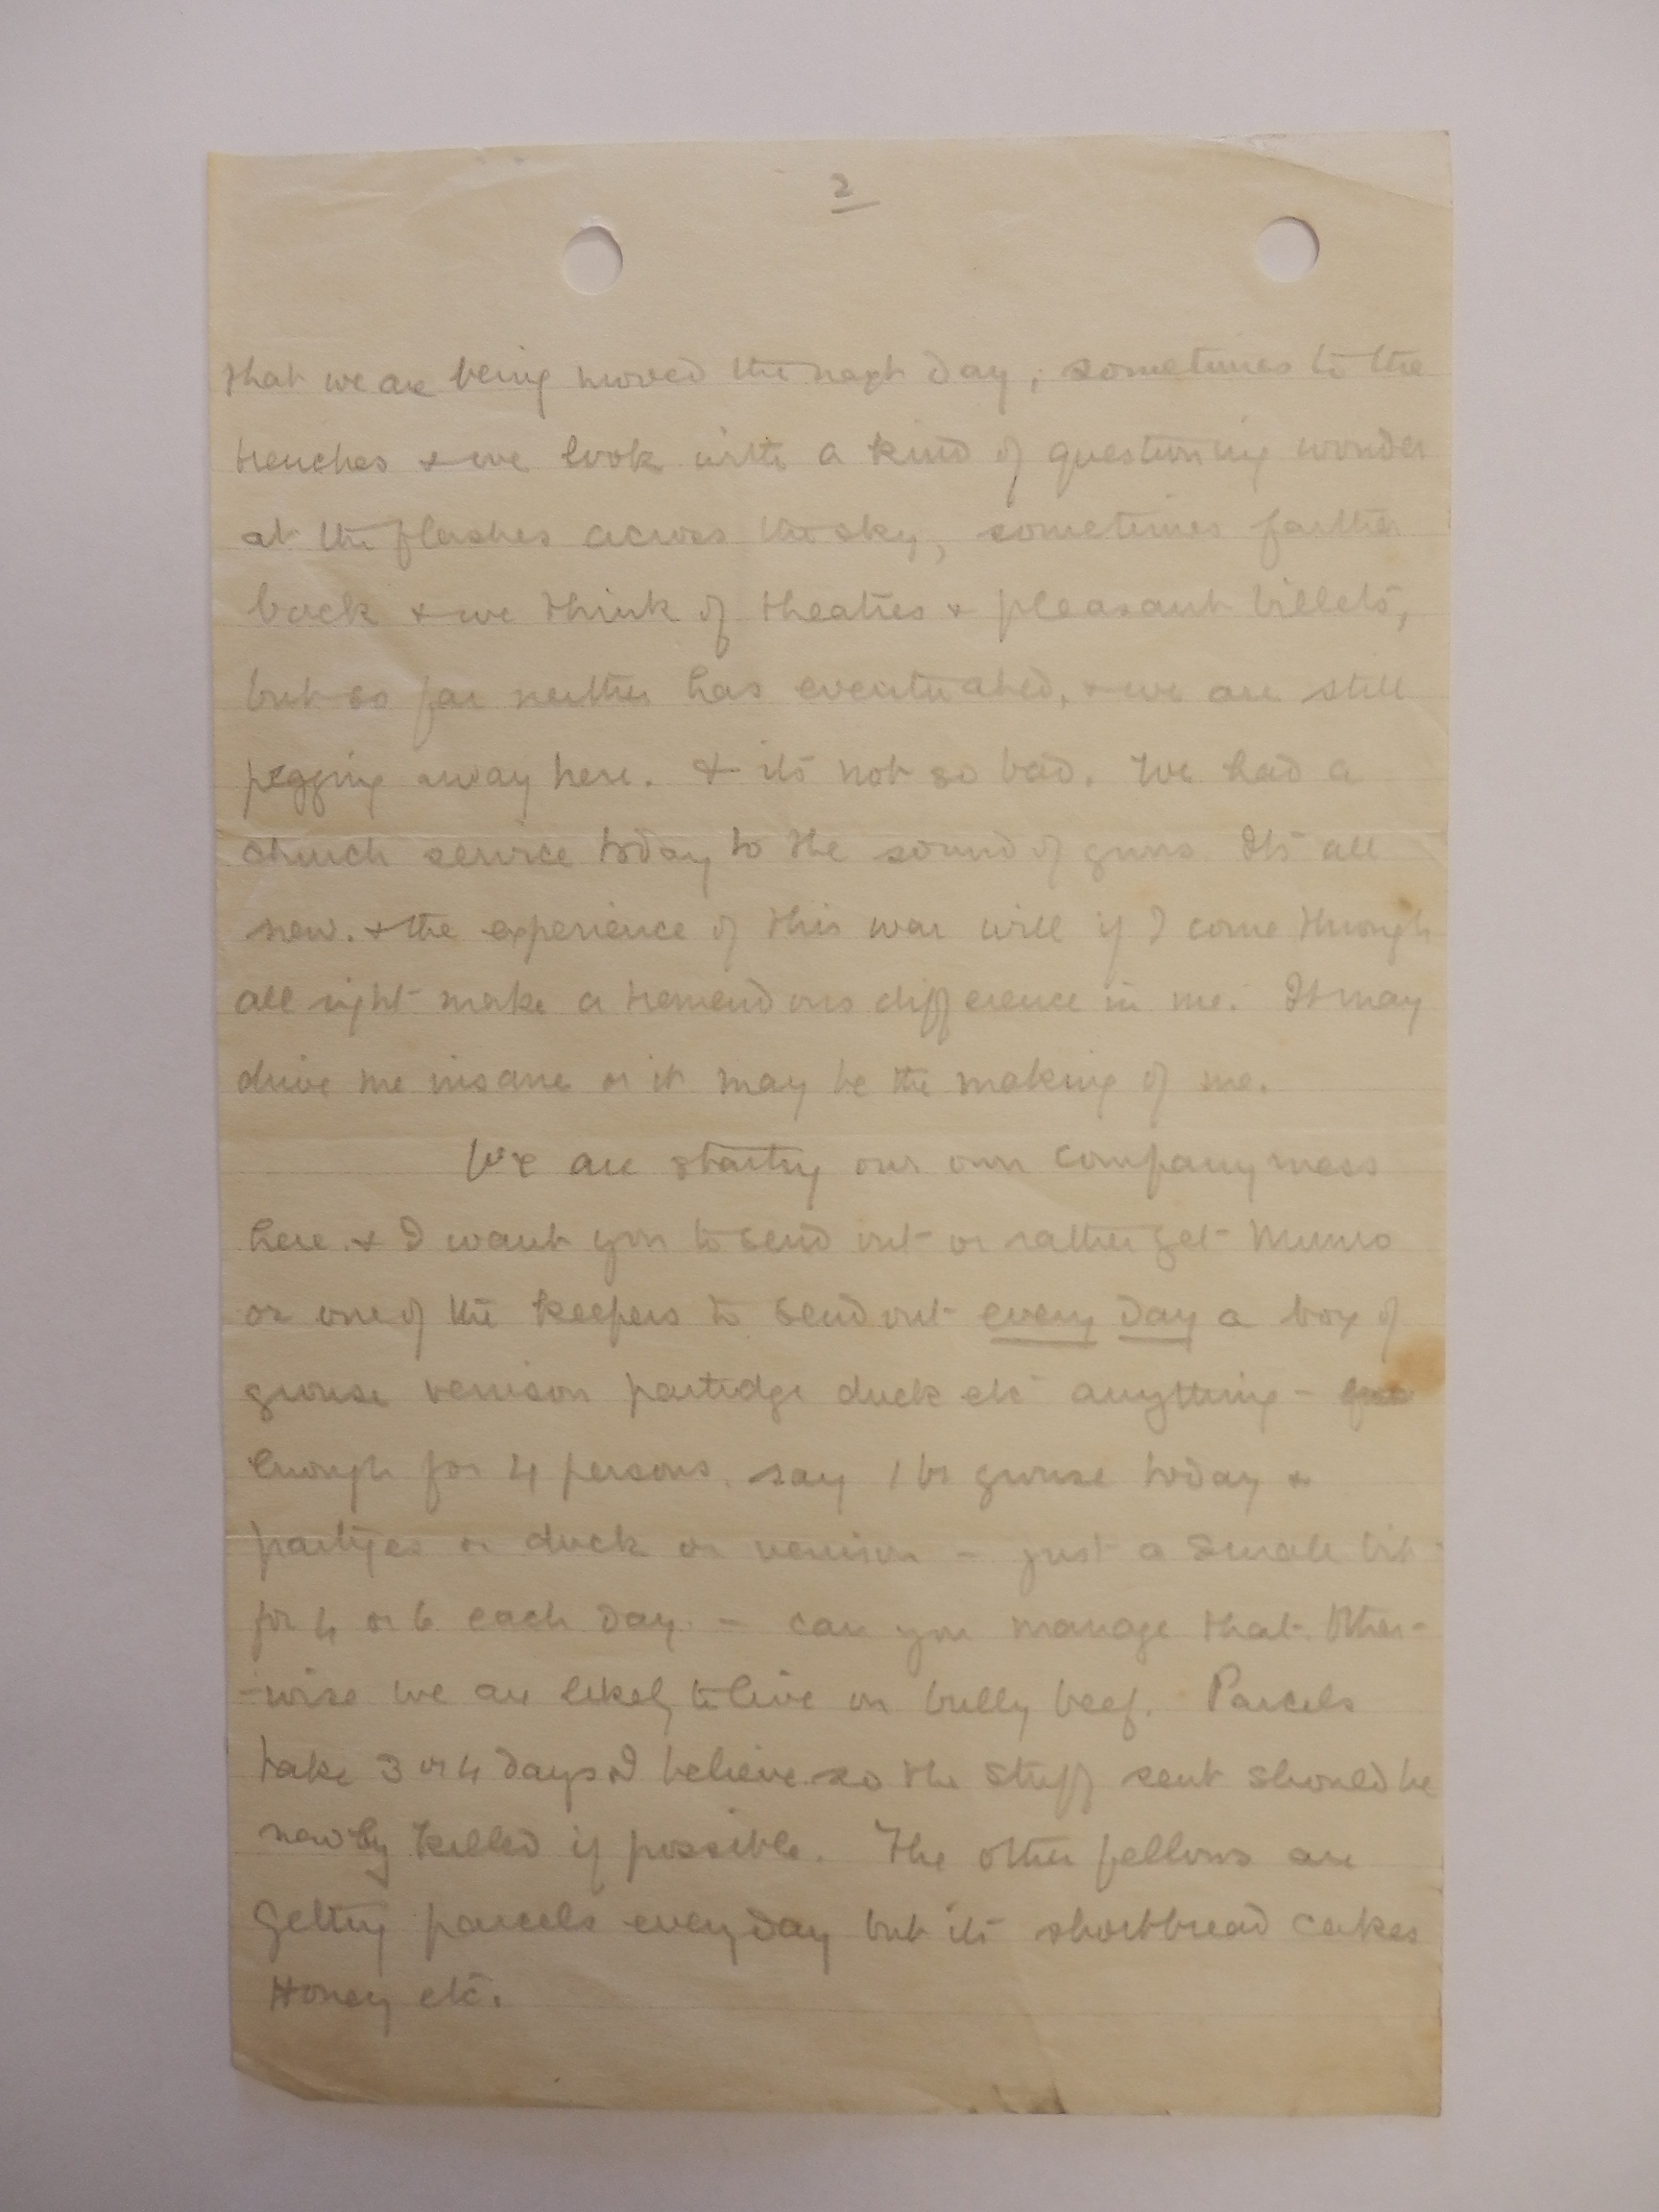 2
that we are being moved the next day, sometimes to the
trenches & we look with a kind of questioning wonder
at the flashes across the sky, sometimes farther
back & we think of theatres & pleasant billets,
but so far neither has eventuated, & we are still
pegging away here. & its not so bad. We had a
church service today to the sound of guns. Its all
new. & the experience of this war will if I come through
all right make a tremendous difference in me. It may
drive me insane or it may be the making of me.
We are starting our own company mess
here. & I want you to send out or rather get Munro
or one of the keepers to send out every day a box of
grouse venison partridge duck etc anything -
enough for 4 persons. say 1 br grouse today &
or duck or venison - just a small bit
for 4 or 6 each day. - can you manage that. Other-
-wise we are likely to live on bully beef. Parcels
take 3 or 4 days I believe so the stuff sent should be
newly killed if possible. The other fellows are
getting parcels every day but its shortbread cakes
Honey etc.